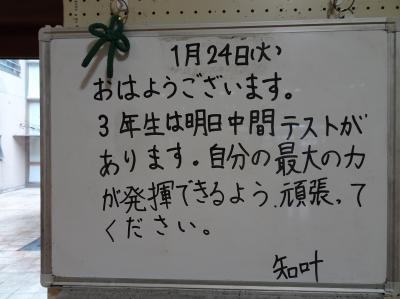 1月24日(火)
おはようございます。
3年生は明日中間テストが
あります。自分の最大の力
が発揮できるよう、頑張って
ください。
知叶